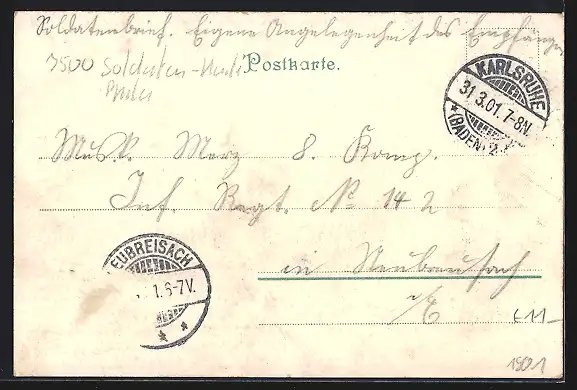 Soldatenbrief. Eigene Angelegenheit des Empfängers
3500 Soldaten-
Postkarte.
KARLSRUHE
31.3.01.7-8N.
*(BADEN)2.
Musk. Merz 8. Komp.
Inf. Regt. No 142
EUBREISACH
1.6-7V.
in Neubreisach
i/E
1901